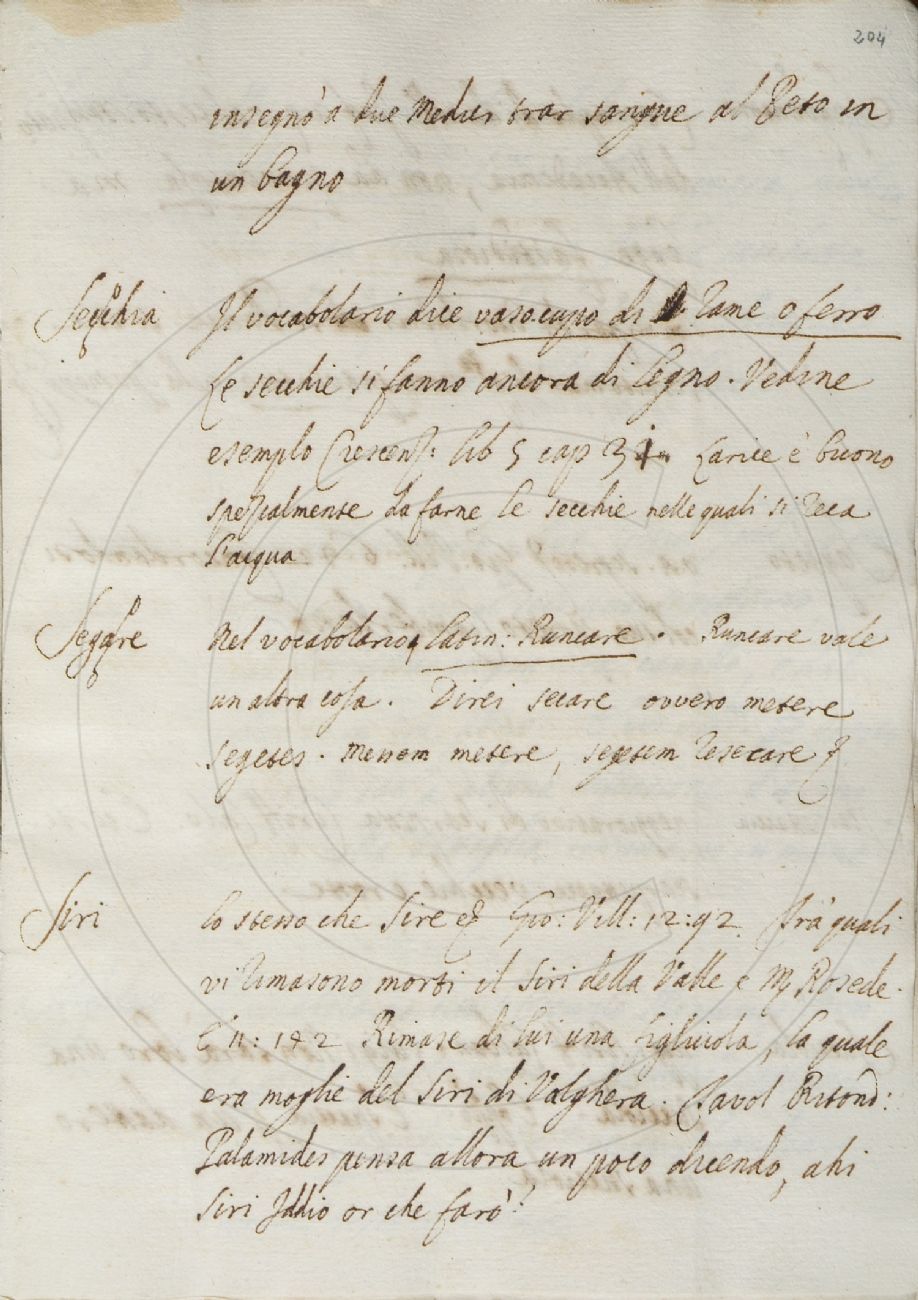 204
insegnò a due Medici trar sangue al Peto in
un bagno
Secchia Il vocabolario dice vaso cupo di Rame o ferro
Le secchie si fanno ancora di legno. Vedine
esemplo Crescenz: lib 5 cap 3 Larice è buono
spezialmente da farne le secchie nelle quali si reca
l'acqua
Segare Nel vocabolario latin: Runcare. Runcare vale
un altra cosa. Direi secare ovvero metere
segetes. Messem metere, segetem resecare
Siri lo stesso che Sire Gio: Vill: 12:92 Frà quali
vi rimasono morti il Siri della Valle e M Rosele.
E n: 142 Rimase di lui una figliuola, la quale
era moglie del Siri di Valghera. Tavol Ritond:
Palamides pensa allora un poco dicendo, ahi
Siri Iddio or che farò?